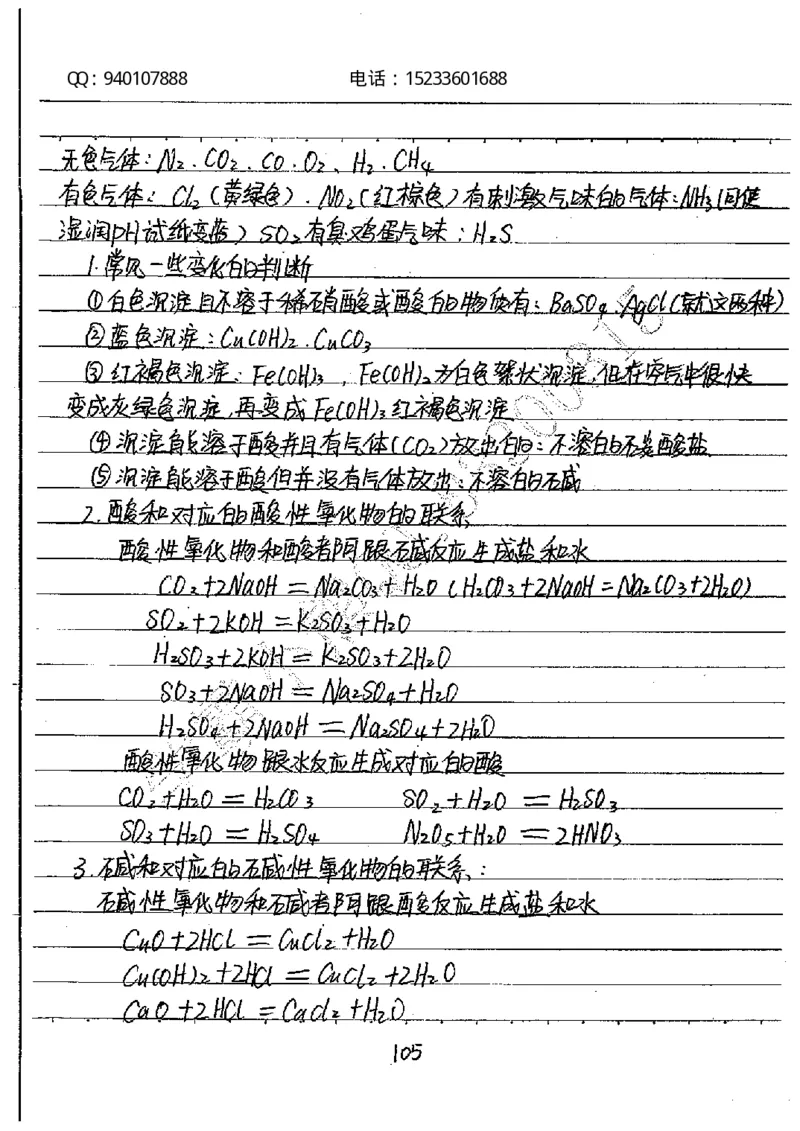 QQ：940107888 电话：15233601688
无色气体：N₂.CO₂.CO.O₂、H₂.CH₄
有色气体：Cl₂（黄绿色）.NO₂（红棕色）有刺激气味的气体：NH₃（可使
湿润pH试纸变蓝）SO₂有臭鸡蛋气味：H₂S
1.常见一些变化的判断
①白色沉淀且不溶于稀硝酸或酸的物质有：BaSO₄.AgCl（就这两种）
②蓝色沉淀：Cu(OH)₂.CuCO₃
③红褐色沉淀：Fe(OH)₃，Fe(OH)₂为白色絮状沉淀，但在空气中很快
变成灰绿色沉淀，再变成Fe(OH)₃红褐色沉淀
④沉淀能溶于酸并且有气体(CO₂)放出的：不溶的碳酸盐
⑤沉淀能溶于酸但并没有气体放出：不溶的碱
2.酸和对应的酸性氧化物的联系
酸性氧化物和酸都可跟碱反应生成盐和水
CO₂+2NaOH=Na₂CO₃+H₂O（H₂CO₃+2NaOH=Na₂CO₃+2H₂O）
SO₂+2KOH=K₂SO₃+H₂O
H₂SO₃+2KOH=K₂SO₃+2H₂O
SO₃+2NaOH=Na₂SO₄+H₂O
H₂SO₄+2NaOH=Na₂SO₄+2H₂O
酸性氧化物跟水反应生成对应的酸
CO₂+H₂O=H₂CO₃ SO₂+H₂O=H₂SO₃
SO₃+H₂O=H₂SO₄ N₂O₅+H₂O=2HNO₃
3.碱和对应的碱性氧化物的联系：
碱性氧化物和碱都可跟酸反应生成盐和水
CuO+2HCl=CuCl₂+H₂O
Cu(OH)₂+2HCl=CuCl₂+2H₂O
CaO+2HCl=CaCl₂+H₂O
105